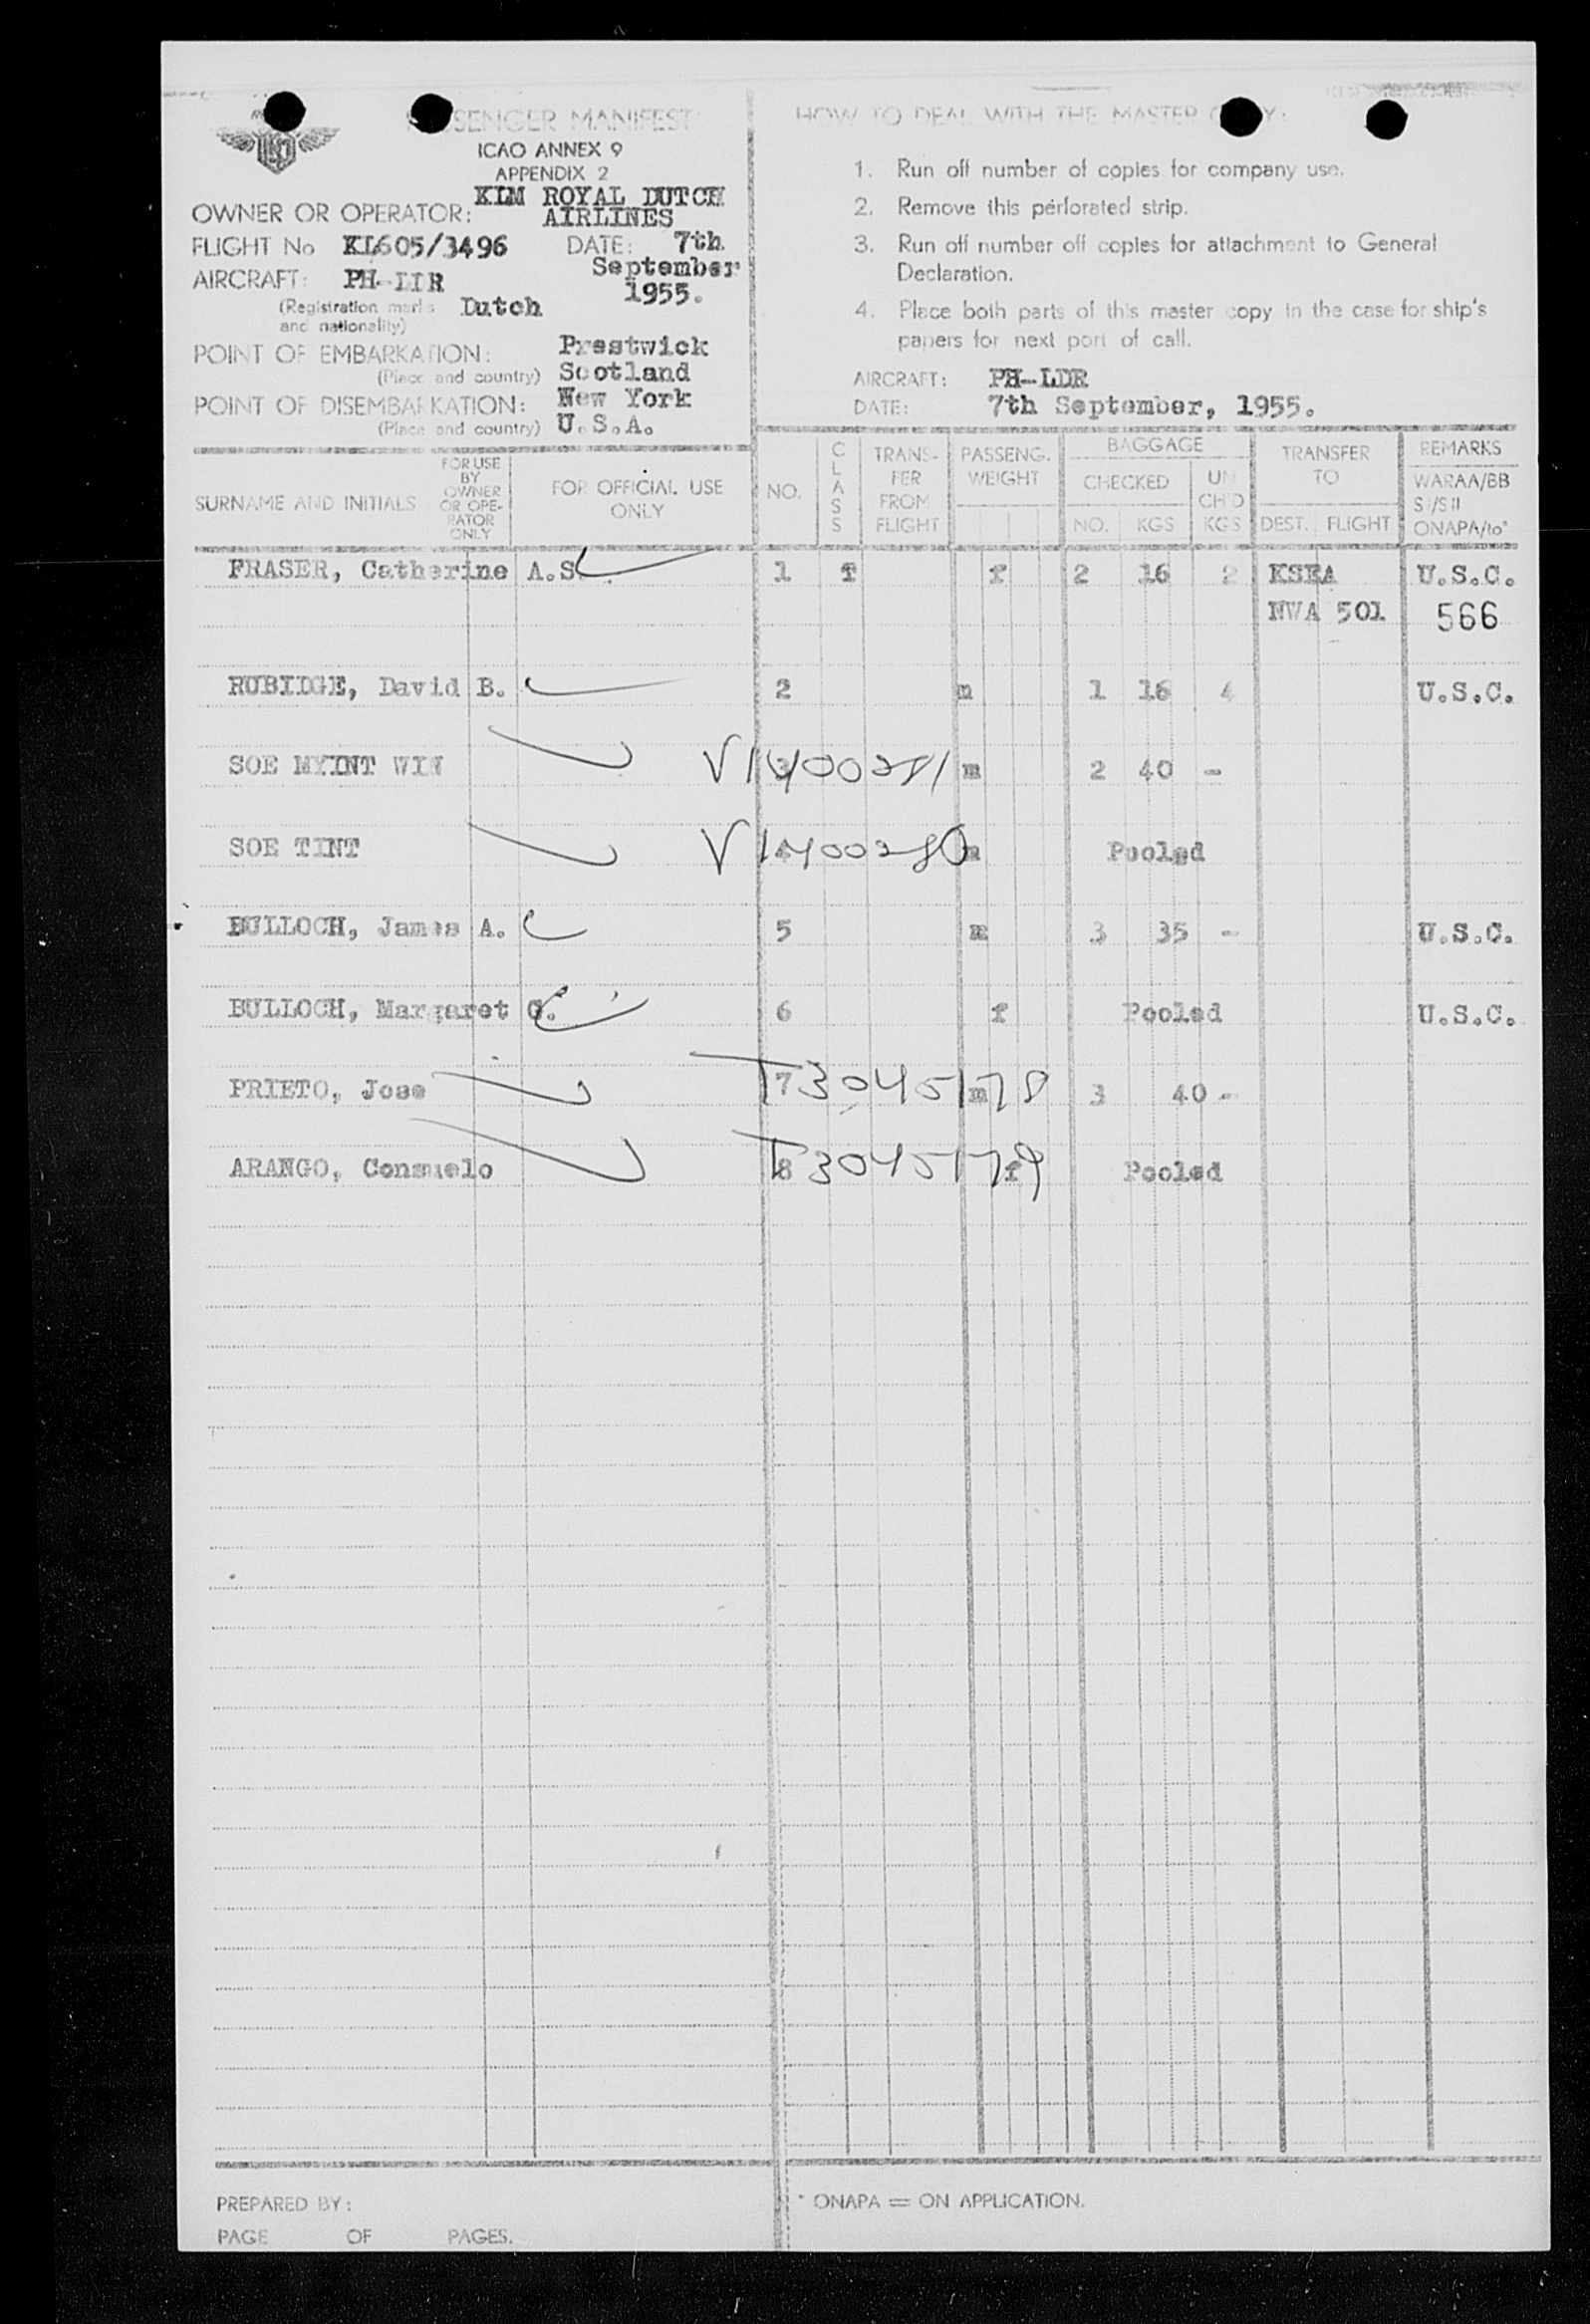 PASSENGER MANIFEST
ICAO ANNEX 9
APPENDIX 2
OWNER OR OPERATOR: KLM ROYAL DUTCH
AIRLINES
FLIGHT No KL605/3496 DATE: 7th
September
1955.
AIRCRAFT: PH-LDR
(Registration marks and nationality) Dutch
POINT OF EMBARKATION: Prestwick
(Place and country) Scotland
POINT OF DISEMBARKATION: New York
(Place and country) U.S.A.
HOW TO DEAL WITH THE MASTER COPY:
1. Run off number of copies for company use.
2. Remove this perforated strip.
3. Run off number off copies for attachment to General
Declaration.
4. Place both parts of this master copy in the case for ship's
papers for next port of call.
AIRCRAFT: PH-LDR
DATE: 7th September, 1955.
SURNAME AND INITIALS
FOR USE
BY
OWNER
OR OPE-
RATOR
ONLY
FOR OFFICIAL USE
ONLY
NO.
CLASS
TRANS-
FER
FROM
FLIGHT
PASSENG.
WEIGHT
BAGGAGE
CHECKED
NO. KGS
UN
CH'D
KGS
TRANSFER
TO
DEST. FLIGHT
REMARKS
WARAA/BB
SI/SII
ONAPA/to*
FRASER, Catherine A.S. 1 f f 2 16 2 KSEA U.S.C.
NWA 501 566
RUBIDGE, David B. 2 m 1 16 4 U.S.C.
SOE MYINT WIN V1400281 3 m 2 40 -
SOE TINT V1400280 4 m Pooled
BULLOCH, James A. 5 m 3 35 - U.S.C.
BULLOCH, Margaret G. 6 f Pooled U.S.C.
PRIETO, Jose 7 T3045178 m 3 40 -
ARANGO, Consuelo 8 T3045179 f Pooled
PREPARED BY:
PAGE OF PAGES.
* ONAPA = ON APPLICATION.